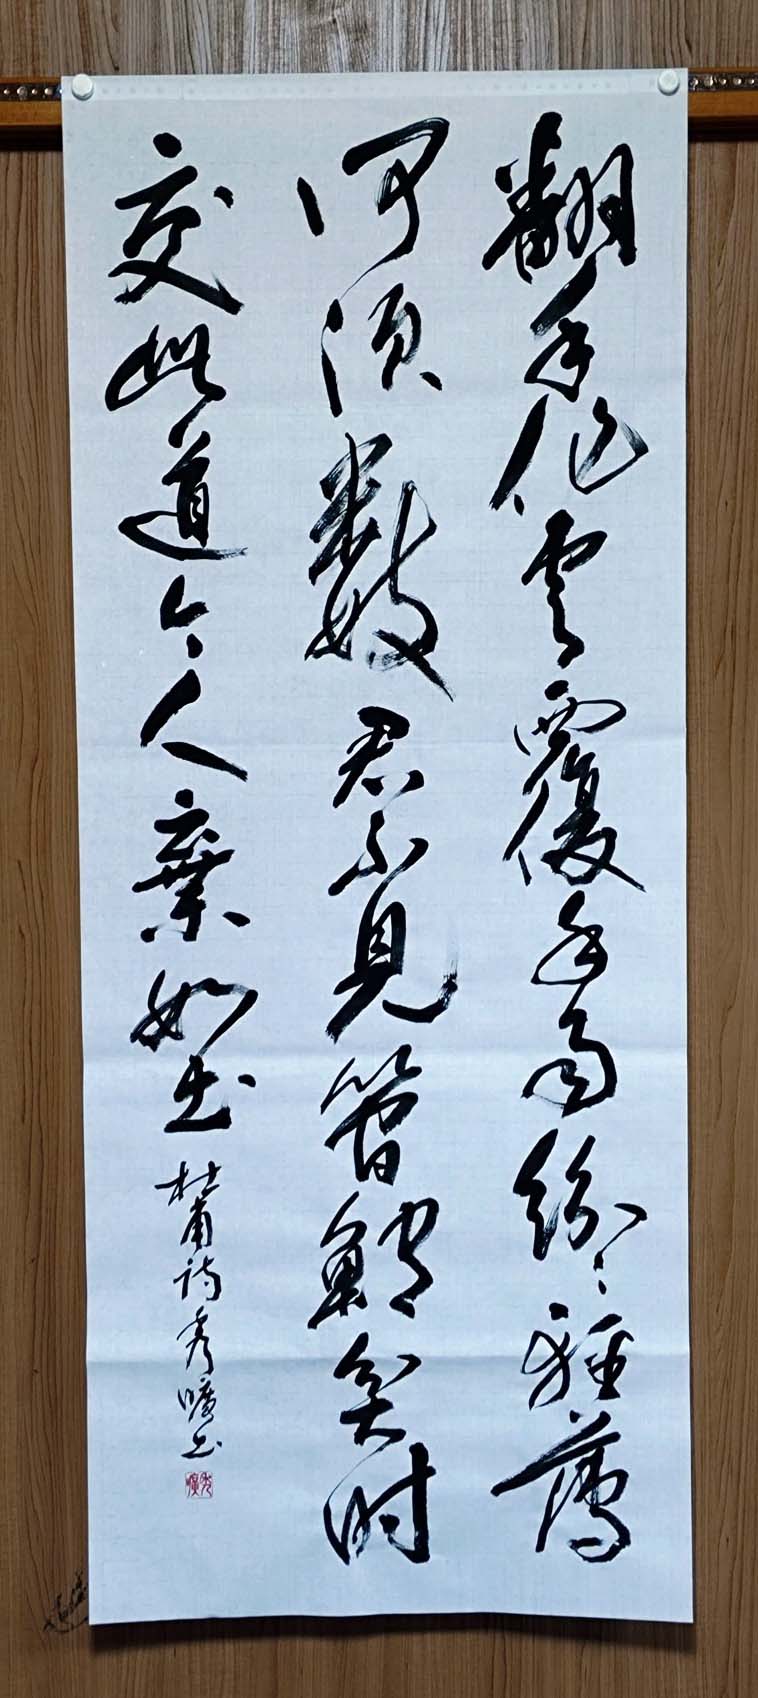 翻手作雲覆手雨紛〻輕薄
何須数君不見管鮑貧时
交此道今人棄如土
杜甫詩秀曠书